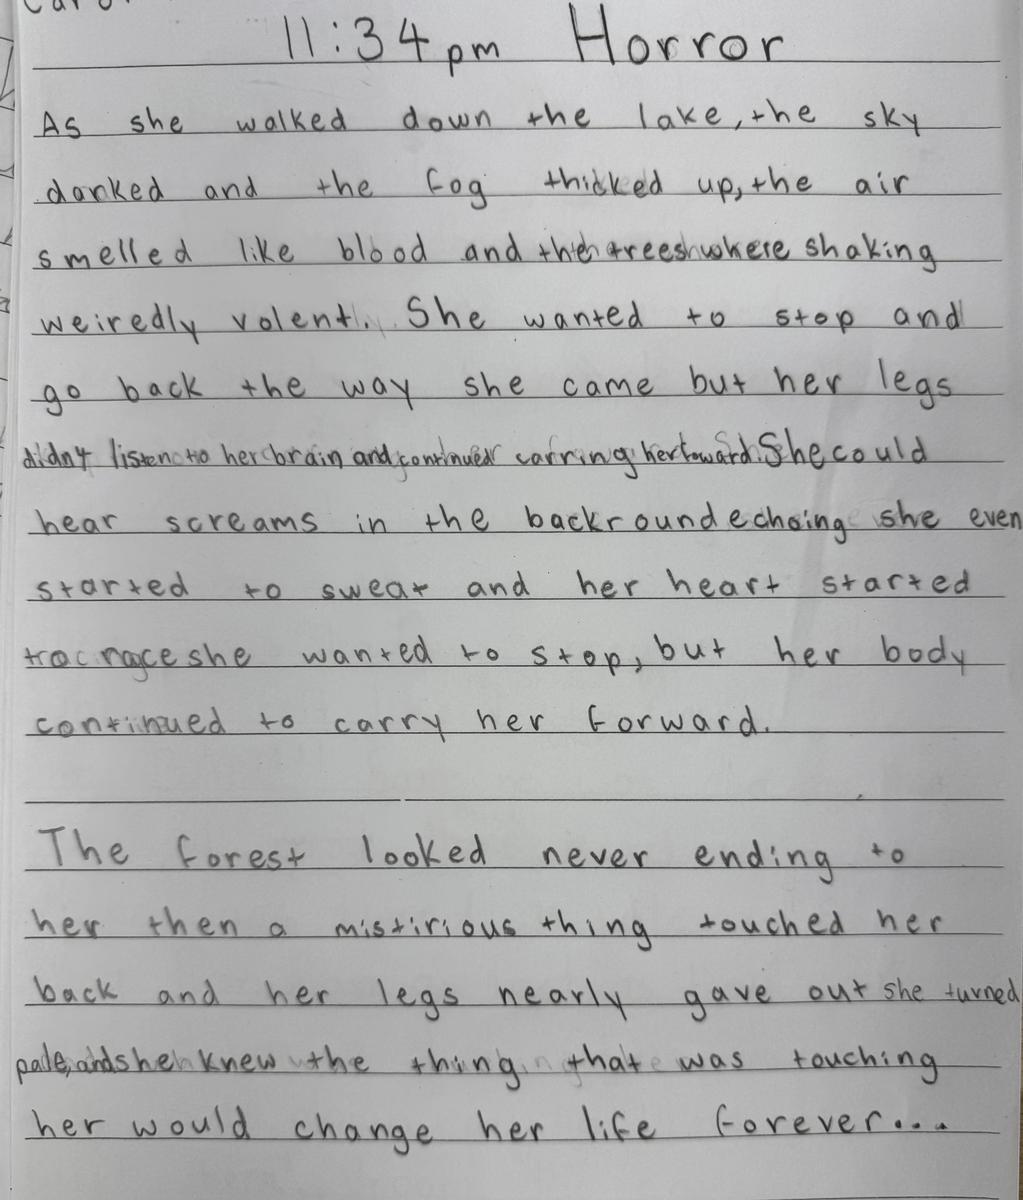 11:34pm Horror
As she walked down the lake, the sky
darked and the fog thicked up, the air
smelled like blood and the trees where shaking
weiredly volent. She wanted to stop and
go back the way she came but her legs
didnt listen to her brain and continued carring her foward. She could
hear screams in the backround echoing she even
started to sweat and her heart started
to race she wanted to stop, but her body
continued to carry her forward.
The forest looked never ending to
her then a mistirious thing touched her
back and her legs nearly gave out she turned
pale, and she knew the thing that was touching
her would change her life forever...